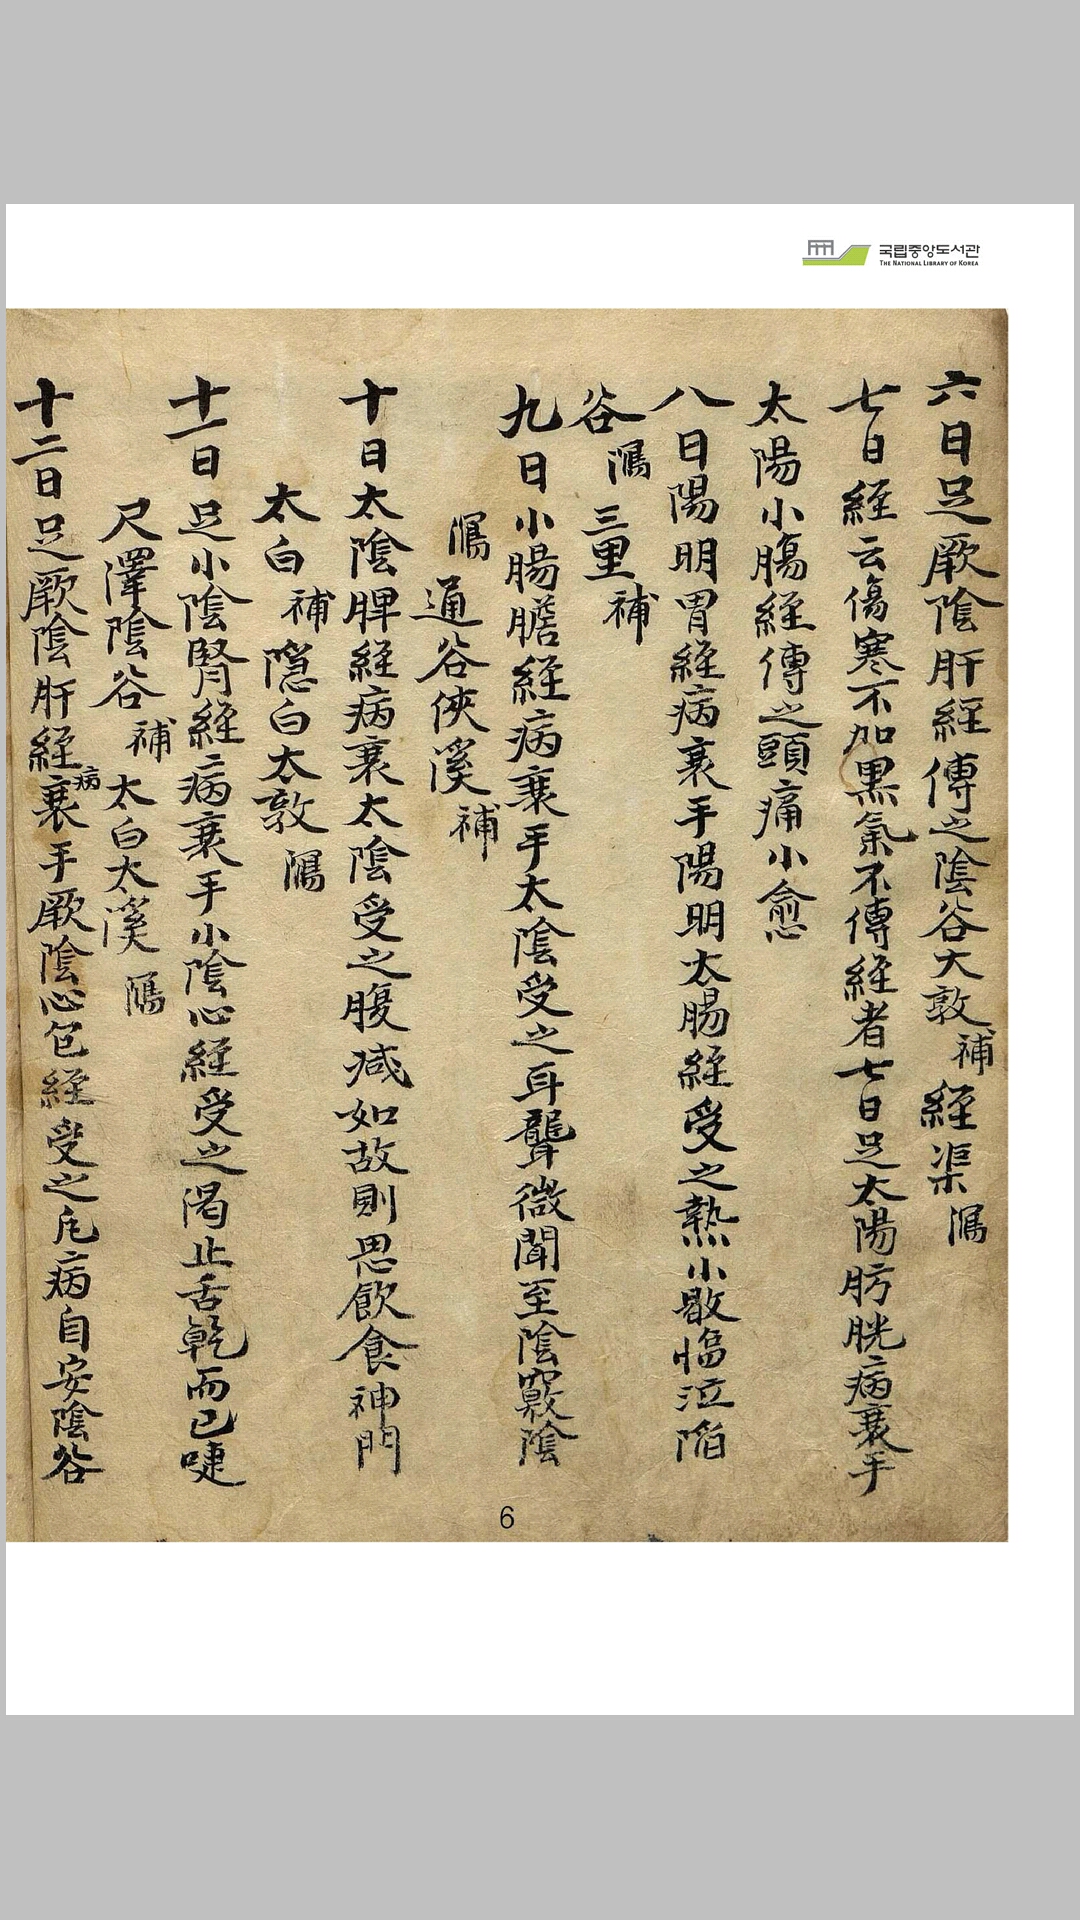 국립중앙도서관
THE NATIONAL LIBRARY OF KOREA
六日足厥陰肝経傳之陰谷大敦補経渠瀉
七日経云傷寒不加黑氣不傳経者七日足太陽肪胱病衰手
太陽小腸経傳之頭痛小愈
八日陽明胃経病衰手陽明太腸経受之熱小歇傷泣陷
谷瀉三里補
九日小腸膽経病衰手太陰受之耳聾微聞至陰竅陰
瀉通谷俠溪補
十日太陰脾経病衰太陰受之腹减如故則思飲食神門
太白補隱白太敦瀉
十一日足小陰腎経病衰手小陰心経受之渴止舌乾而已啑
尺澤陰谷補太白太溪瀉
十二日足厥陰肝経病衰手厥陰心包経受之凡病自安陰谷
6